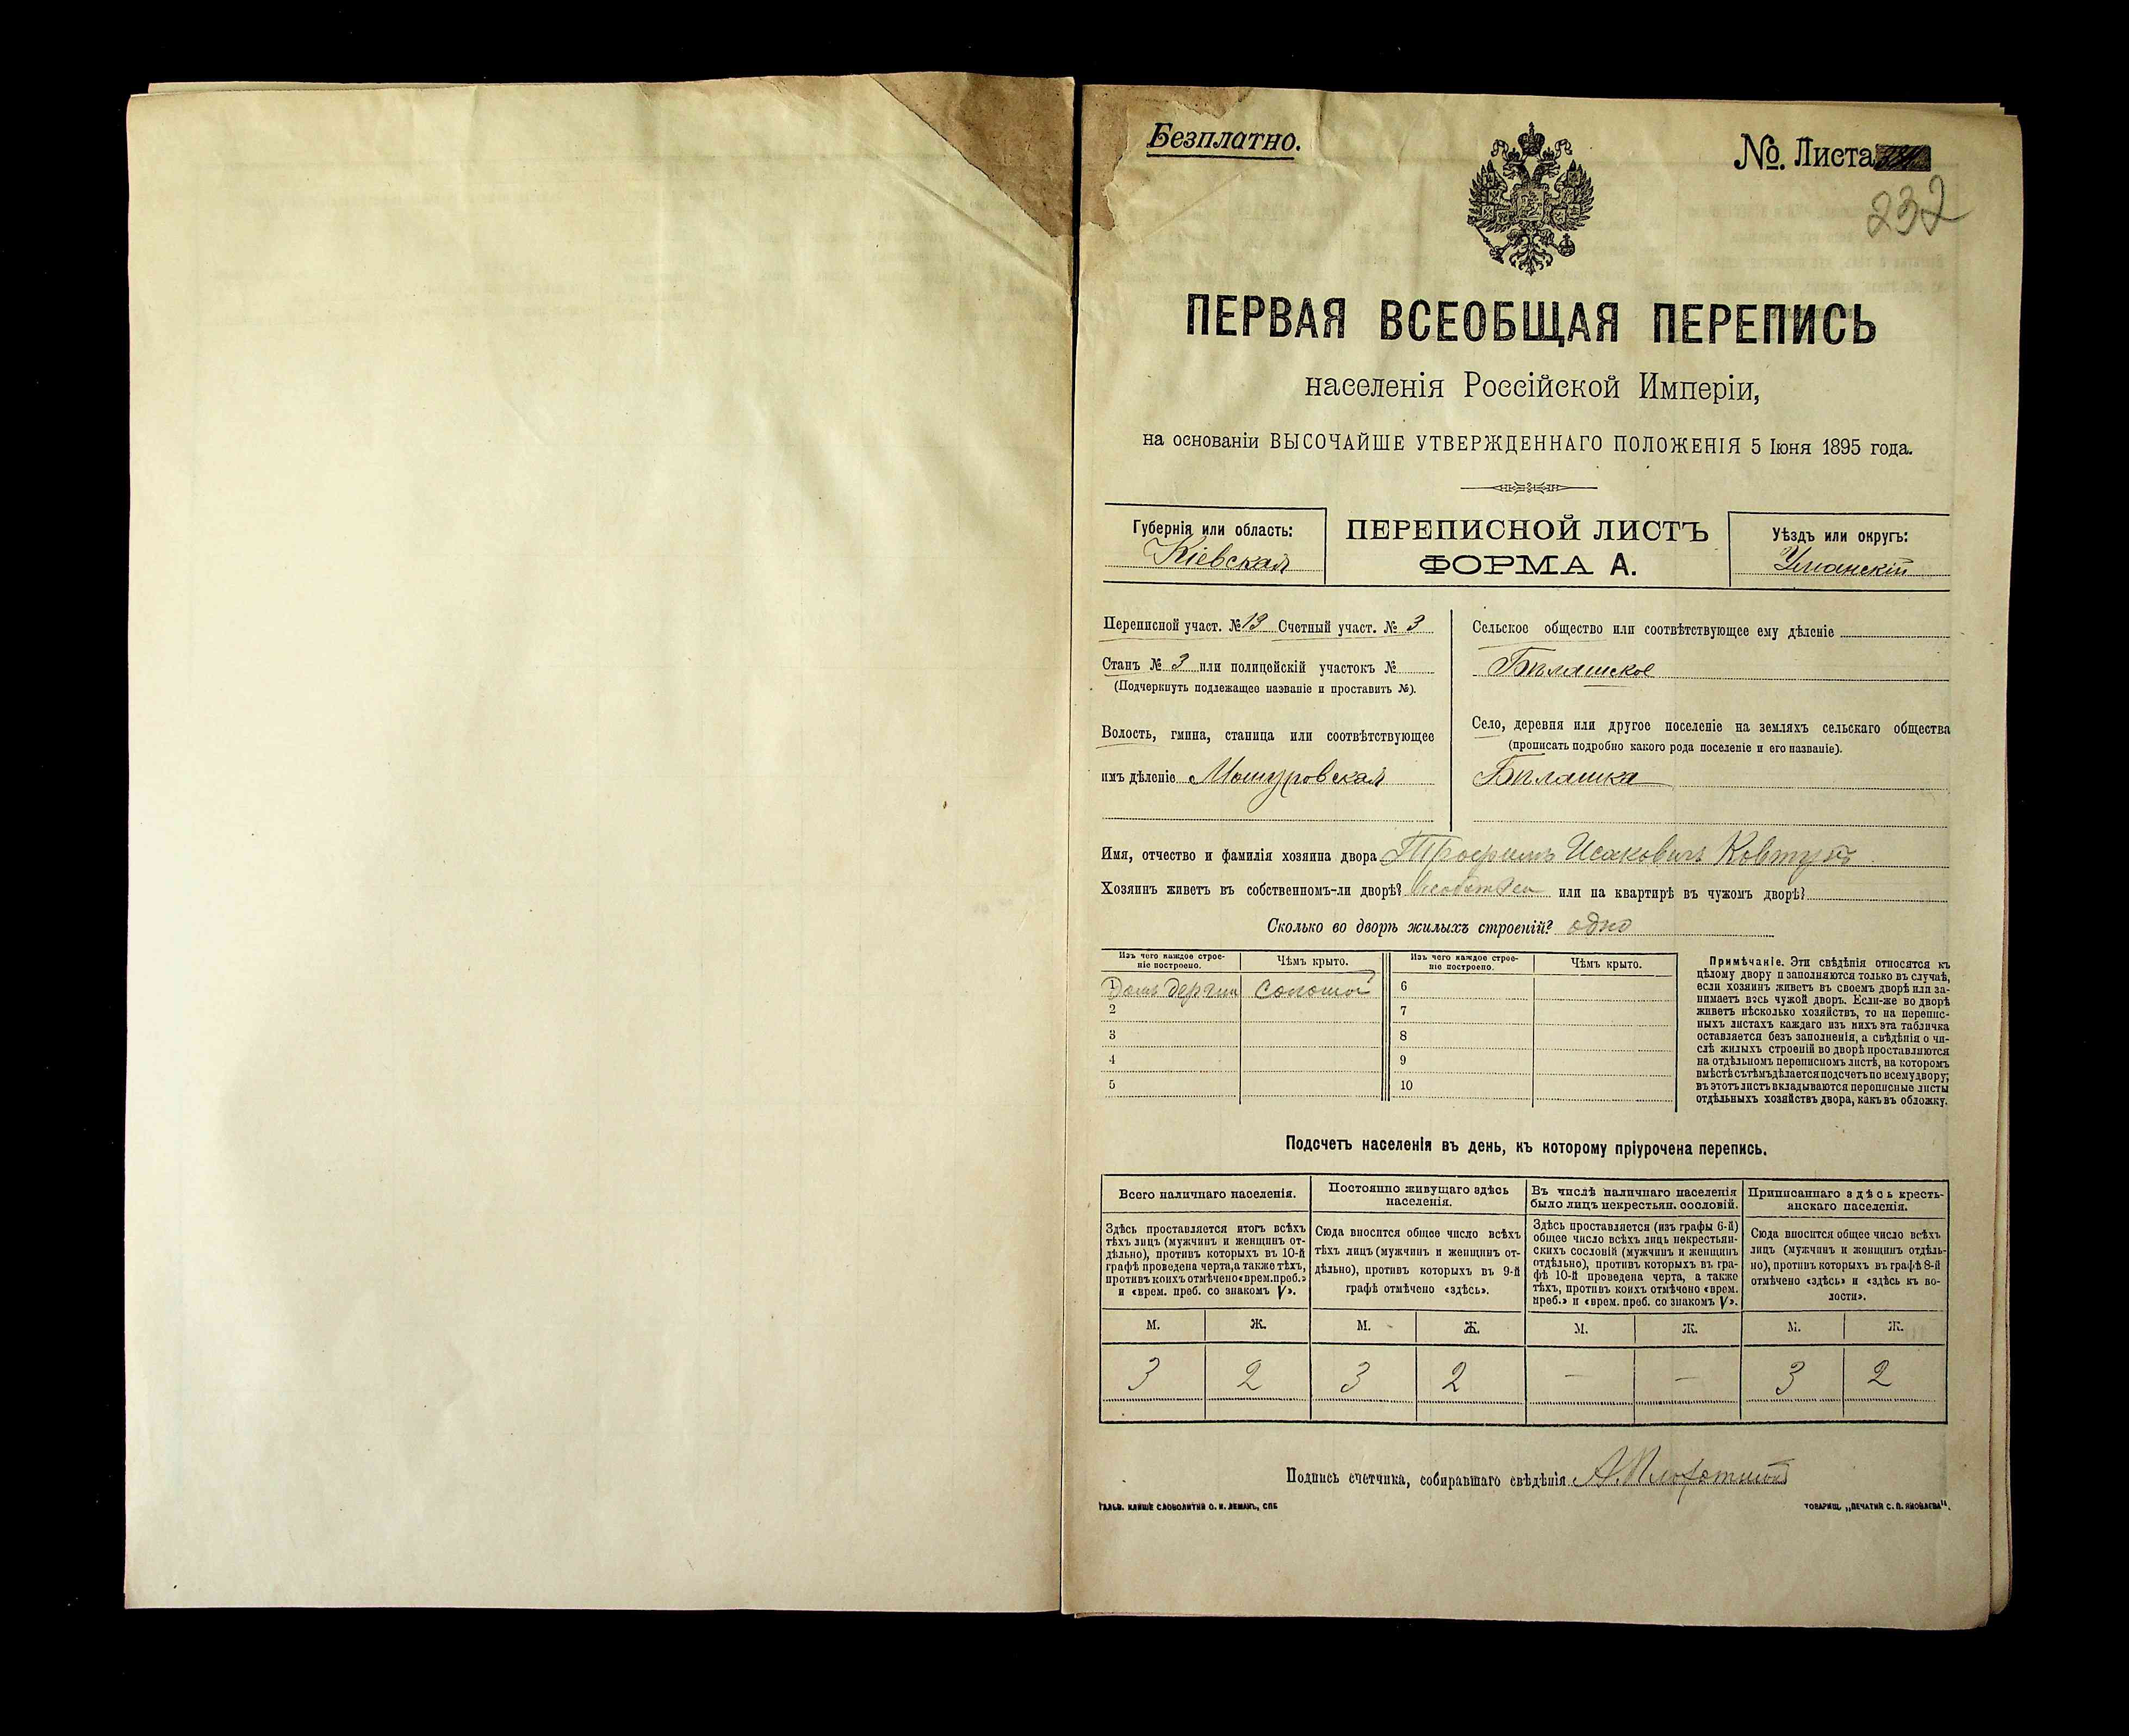 Безплатно.
№ Листа
232
ПЕРВАЯ ВСЕОБЩАЯ ПЕРЕПИСЬ
населенія Россійской Имперіи,
на основаніи ВЫСОЧАЙШЕ УТВЕРЖДЕННАГО ПОЛОЖЕНІЯ 5 Іюня 1895 года.
Губернія или область:
Кіевская
ПЕРЕПИСНОЙ ЛИСТЪ
ФОРМА А.
Уѣздъ или округъ:
Уманскій
Переписной участ. № 13 Счетный участ. № 3
Станъ № 3 или полицейскій участокъ №
(Подчеркнуть подлежащее названіе и проставить №).
Волость, гмина, станица или соотвѣтствующее
имъ дѣленіе Машуровская
Сельское общество или соотвѣтствующее ему дѣленіе
Бѣлашское
Село, деревня или другое поселеніе на земляхъ сельскаго общества
(прописать подробно какого рода поселеніе и его названіе).
Билашка
Имя, отчество и фамилія хозяина двора Трофимъ Исаковичъ Ковтунъ
Хозяинъ живетъ въ собственномъ-ли дворѣ? или на квартирѣ въ чужомъ дворѣ?
Сколько во дворѣ жилыхъ строеній? одно
Изъ чего каждое строе-
ніе построено.
Чѣмъ крыто.
Изъ чего каждое строе-
ніе построено.
Чѣмъ крыто.
1 соломой 6
2 7
3 8
4 9
5 10
Примѣчаніе. Эти свѣдѣнія относятся къ
цѣлому двору и заполняются только въ случаѣ,
если хозяинъ живетъ въ своемъ дворѣ или за-
нимаетъ весь чужой дворъ. Если-же во дворѣ
живетъ нѣсколько хозяйствъ, то на перепис-
ныхъ листахъ каждаго изъ нихъ эта табличка
оставляется безъ заполненія, а свѣдѣнія о чи-
слѣ жилыхъ строеній во дворѣ проставляются
на отдѣльномъ переписномъ листѣ, на которомъ
вмѣстѣ съ тѣмъ дѣлается подсчетъ по всему двору;
въ этотъ листъ вкладываются переписные листы
отдѣльныхъ хозяйствъ двора, какъ въ обложку.
Подсчетъ населенія въ день, къ которому пріурочена перепись.
Всего наличнаго населенія.
Здѣсь проставляется итогъ всѣхъ
тѣхъ лицъ (мужчинъ и женщинъ от-
дѣльно), противъ которыхъ въ 10-й
графѣ проведена черта, а также тѣхъ,
противъ коихъ отмѣчено «врем. преб.»
и «врем. преб. со знакомъ V».
Постоянно живущаго здѣсь
населенія.
Сюда вносится общее число всѣхъ
тѣхъ лицъ (мужчинъ и женщинъ от-
дѣльно), противъ которыхъ въ 9-й
графѣ отмѣчено «здѣсь».
Въ числѣ наличнаго населенія
было лицъ некрестьян. сословій.
Здѣсь проставляется (изъ графы 6-й)
общее число всѣхъ лицъ некрестьян-
скихъ сословій (мужчинъ и женщинъ
отдѣльно), противъ которыхъ въ гра-
фѣ 10-й проведена черта, а также
тѣхъ, противъ коихъ отмѣчено «врем.
преб.» и «врем. преб. со знакомъ V».
Приписаннаго здѣсь кресть-
янскаго населенія.
Сюда вносится общее число всѣхъ
лицъ (мужчинъ и женщинъ отдѣль-
но), противъ которыхъ въ графѣ 8-й
отмѣчено «здѣсь» и «здѣсь къ во-
лости».
М. Ж. М. Ж. М. Ж. М. Ж.
3 2 3 2 — — 3 2
Подпись счетчика, собиравшаго свѣдѣнія
ГАЛЬВ. КЛИШЕ СЛОВОЛИТНИ О. И. ЛЕМАНЪ, СПБ
ТОВАРИЩ. „ПЕЧАТНИ С. П. ЯКОВЛЕВА".